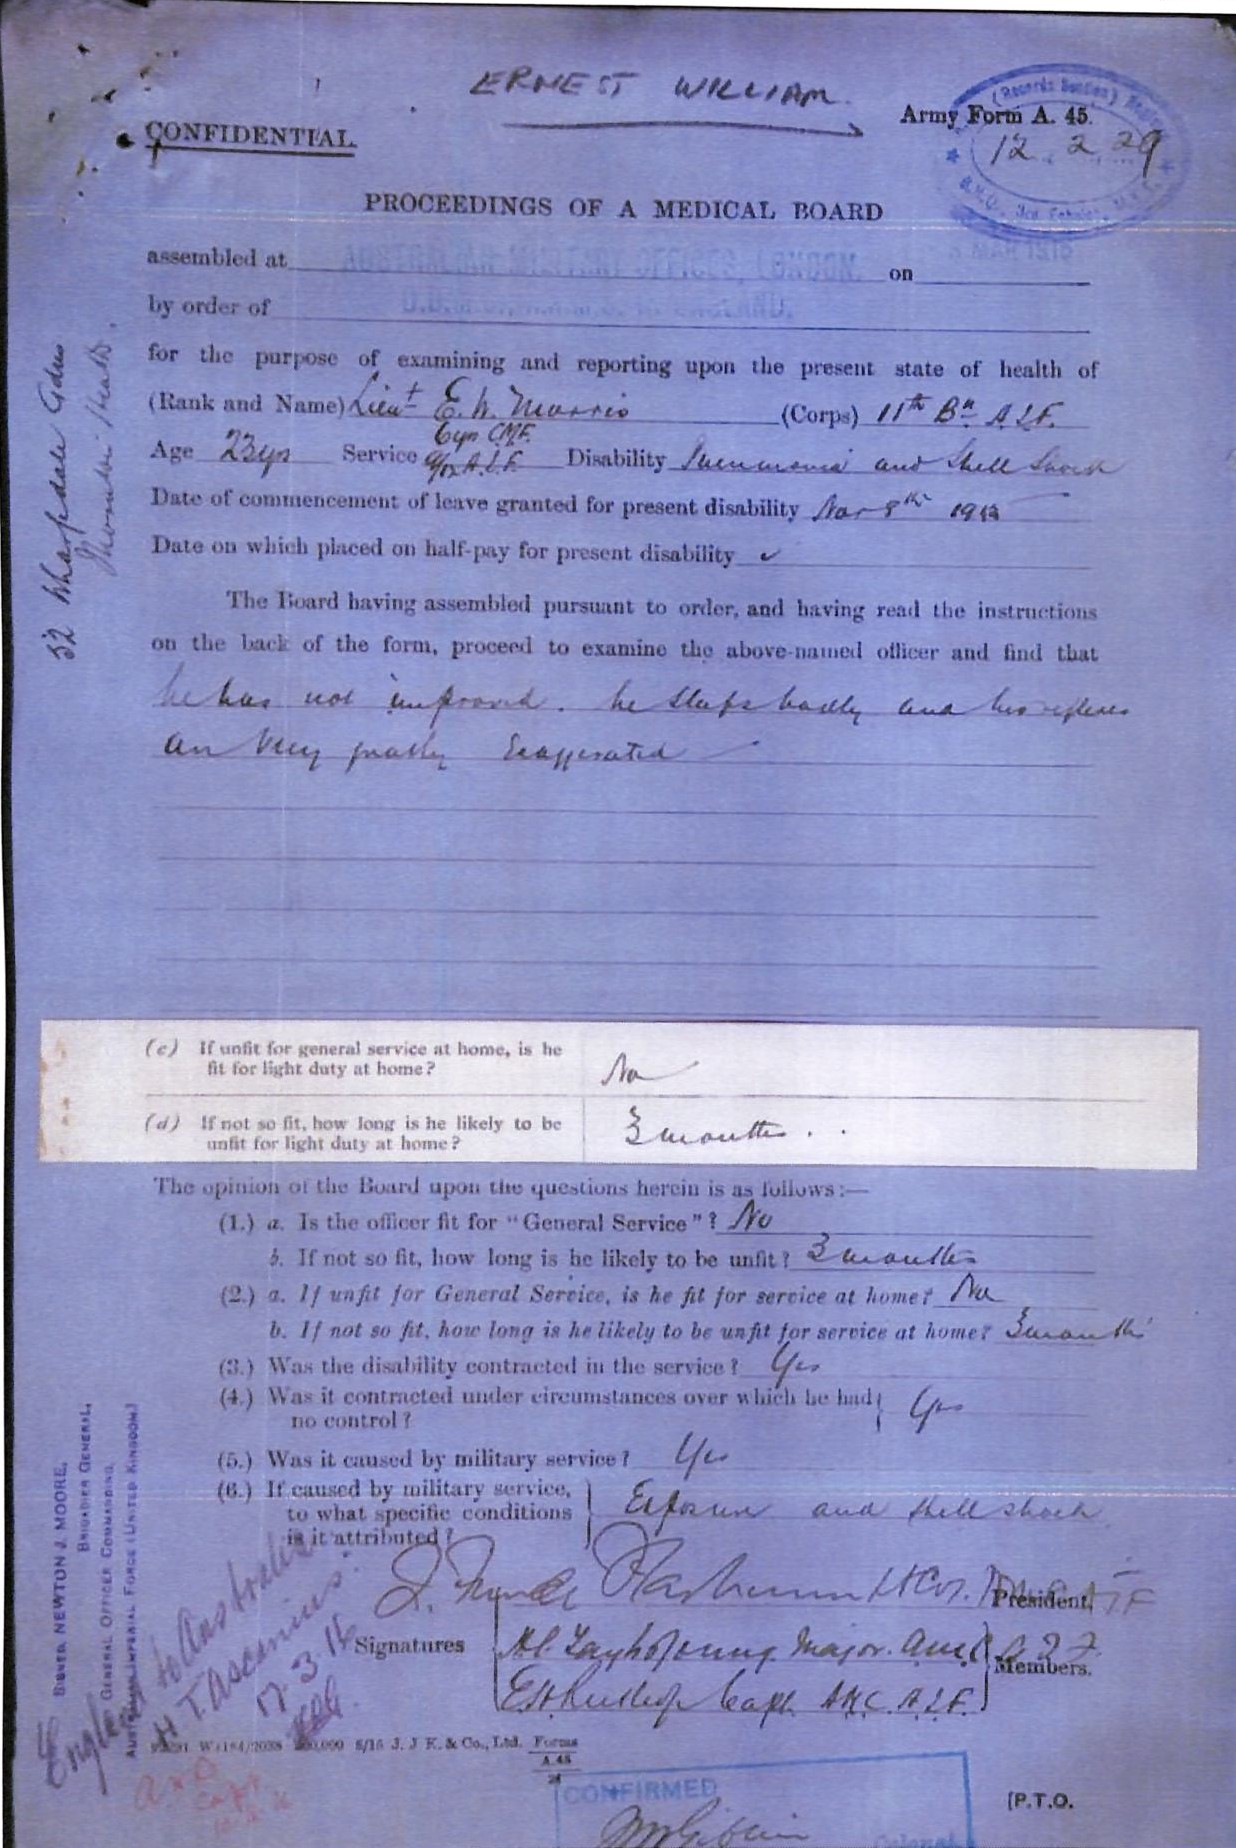 ERNEST WILLIAM
Army Form A. 45.
(Records Section)
12 2 29
CONFIDENTIAL
PROCEEDINGS OF A MEDICAL BOARD
assembled at AUSTRALIAN MILITARY OFFICES, LONDON. on MAR 1916
by order of ENGLAND.
for the purpose of examining and reporting upon the present state of health of
(Rank and Name) Lieut E. W. Morris (Corps) 11th Bn A.I.F.
6 yrs C.M.F.
Age 23 yrs Service A.I.F. Disability Pneumonia and Shell Shock
Date of commencement of leave granted for present disability Nov 8th 1915
Date on which placed on half-pay for present disability
The Board having assembled pursuant to order, and having read the instructions
on the back of the form, proceed to examine the above-named officer and find that
he has not improved. he sleeps badly and his reflexes
are very greatly Exaggerated
32 Wharfedale Gdns
Thornton Heath.
(c) If unfit for general service at home, is he
fit for light duty at home? No
(d) If not so fit, how long is he likely to be
unfit for light duty at home? 3 months . .
The opinion of the Board upon the questions herein is as follows:—
(1.) a. Is the officer fit for "General Service"? No
b. If not so fit, how long is he likely to be unfit? 3 months
(2.) a. If unfit for General Service, is he fit for service at home? No
b. If not so fit, how long is he likely to be unfit for service at home? 3 months
(3.) Was the disability contracted in the service? Yes
(4.) Was it contracted under circumstances over which he had
no control? Yes
(5.) Was it caused by military service? Yes
(6.) If caused by military service,
to what specific conditions
is it attributed? Exposure and shell shock
President.
Signatures Major. A.M.C. A.I.F.
Capt. A.M.C. A.I.F. Members.
SIGNED NEWTON J. MOORE,
BRIGADIER GENERAL,
GENERAL OFFICER COMMANDING,
AUSTRALIAN IMPERIAL FORCE (UNITED KINGDOM)
to Australia
H.T. Ascanius.
17.3.16
5/15 J. J. K. & Co., Ltd. Forms
A. 45
CONFIRMED
Colonel
[P.T.O.